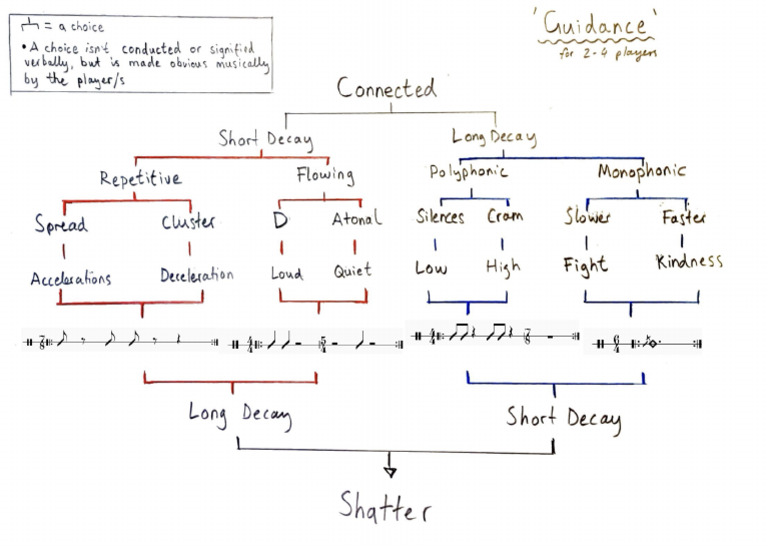 'Guidance'
for 2-4 players
= a choice
• A choice isn't conducted or signified
verbally, but is made obvious musically
by the player/s
Connected
Short Decay Long Decay
Repetitive Flowing Polyphonic Monophonic
Spread Cluster D Atonal Silences Cram Slower Faster
Accelerations Deceleration Loud Quiet Low High Fight Kindness
7/8 4/4 5/4 4/4 7/8 6/4
Long Decay Short Decay
Shatter